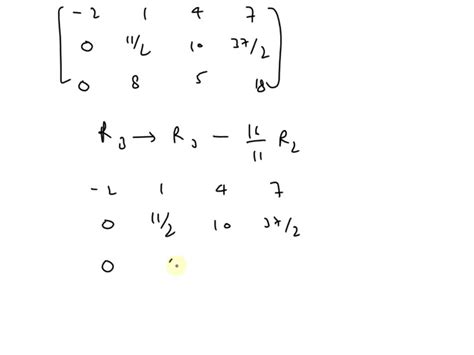 -2 1 4 7
0 11/2 10 37/2
0 8 5 18
R3 → R3 - 16/11 R2
-2 1 4 7
0 11/2 10 37/2
0